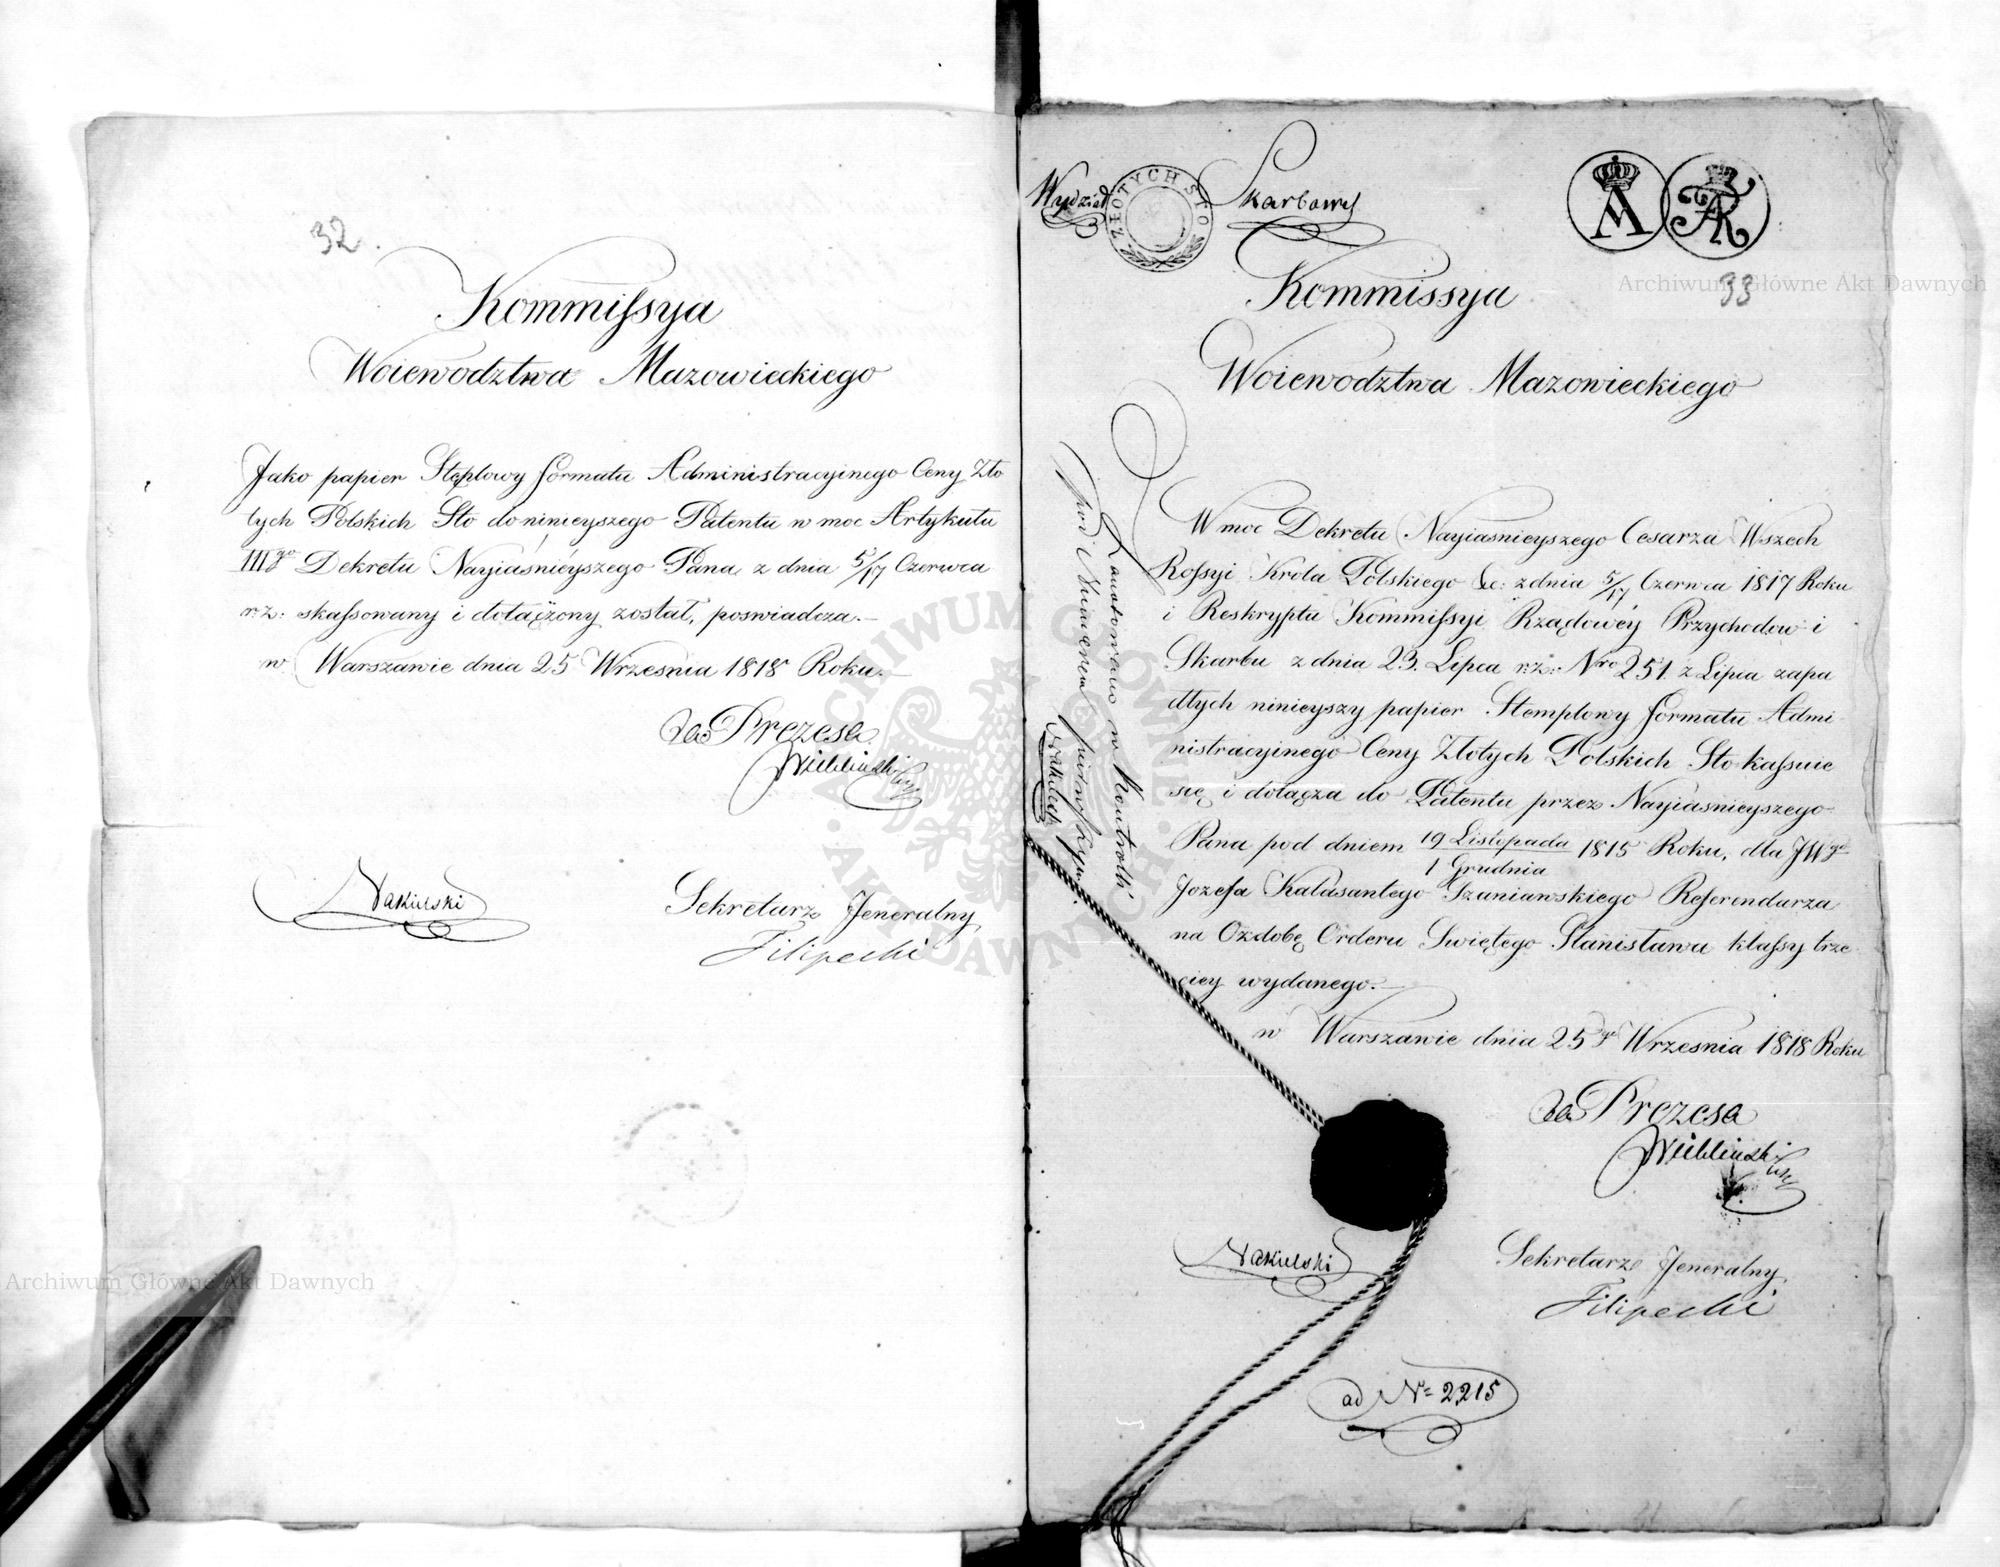 32.
Kommissya
Woiewodztwa Mazowieckiego
Jako papier Stęplowy formatu Administracyinego Ceny Zło
tych Polskich Sto do ninieyszego Patentu w moc Artykułu
IIIgo Dekretu Nayiaśnieyszego Pana z dnia 5/17 Czerwca
r: z: skassowany i dołączony został, poswiadcza.—
w Warszawie dnia 25 Września 1818 Roku.—
Za Prezesa
Nakulski
Sekretarz Jeneralny
Filipecki
Wydział Skarbowy
ZŁOTYCH STO
33
Kommissya
Woiewodztwa Mazowieckiego
W moc Dekretu Nayiasnieyszego Cesarza Wszech
Rossyi Krola Polskiego &c: z dnia 5/17 Czerwca 1817 Roku
i Reskryptu Kommissyi Rządowéy Przychodow i
Skarbu z dnia 23. Lipca r: z: Nro 251. z Lipca zapa
dłych ninieyszy papier Stemplowy formatu Admi
nistracyinego Ceny Złotych Polskich Sto kassuie
się i dołącza do Patentu przez Nayiasnieyszego
Pana pod dniem 19 Listopada / 1 Grudnia 1815 Roku, dla JWgo
Jozefa Kalasantego Szaniawskiego Referendarza
na Ozdobę Orderu Swiętego Stanisława klassy trze
ciey wydanego.—
w Warszawie dnia 25go Września 1818 Roku
Za Prezesa
Nakulski
Sekretarz Jeneralny
Filipecki
ad No 2215
Zanotowano w Kontrolli
pod Numerem pierwszym
Archiwum Główne Akt Dawnych
Archiwum Główne Akt Dawnych
ARCHIWUM GŁÓWNE AKT DAWNYCH